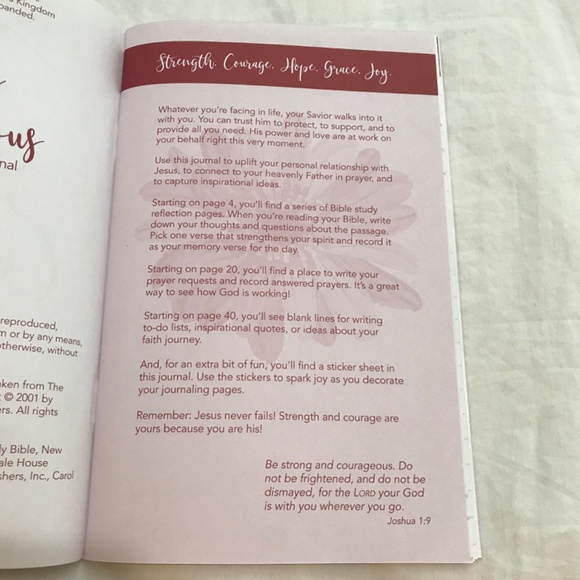 Kingdom
panded.
ous
nal
reproduced,
m or by any means,
otherwise, without
aken from The
© 2001 by
ers. All rights
ly Bible, New
ale House
shers, Inc., Carol
Strength. Courage. Hope. Grace. Joy.
Whatever you're facing in life, your Savior walks into it
with you. You can trust him to protect, to support, and to
provide all you need. His power and love are at work on
your behalf right this very moment.
Use this journal to uplift your personal relationship with
Jesus, to connect to your heavenly Father in prayer, and
to capture inspirational ideas.
Starting on page 4, you'll find a series of Bible study
reflection pages. When you're reading your Bible, write
down your thoughts and questions about the passage.
Pick one verse that strengthens your spirit and record it
as your memory verse for the day.
Starting on page 20, you'll find a place to write your
prayer requests and record answered prayers. It's a great
way to see how God is working!
Starting on page 40, you'll see blank lines for writing
to-do lists, inspirational quotes, or ideas about your
faith journey.
And, for an extra bit of fun, you'll find a sticker sheet in
this journal. Use the stickers to spark joy as you decorate
your journaling pages.
Remember: Jesus never fails! Strength and courage are
yours because you are his!
Be strong and courageous. Do
not be frightened, and do not be
dismayed, for the LORD your God
is with you wherever you go.
Joshua 1:9